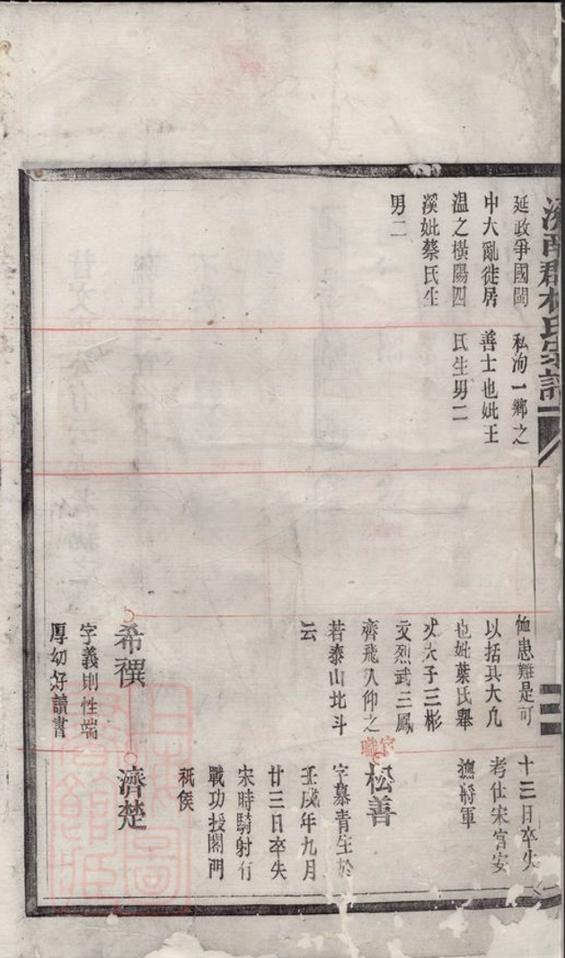 濟南郡林氏宗譜
延政爭國閩
中大亂徙居
温之橫陽四
溪妣蔡氏生
男二
私淘一鄉之
善士也妣王
氏生男二
恤患難是可
以括其大凡
也妣葉氏舉
丈夫子三彬
文烈武三鳳
齊飛人仰之
若泰山北斗
云
希禩
字義則性端
厚幼好讀書
十三日卒失
考仕宋宮安
撫將軍
松善
字慕青生於
壬戌年九月
廿三日卒失
宋時騎射行
戰功授閣門
祗侯
濟楚